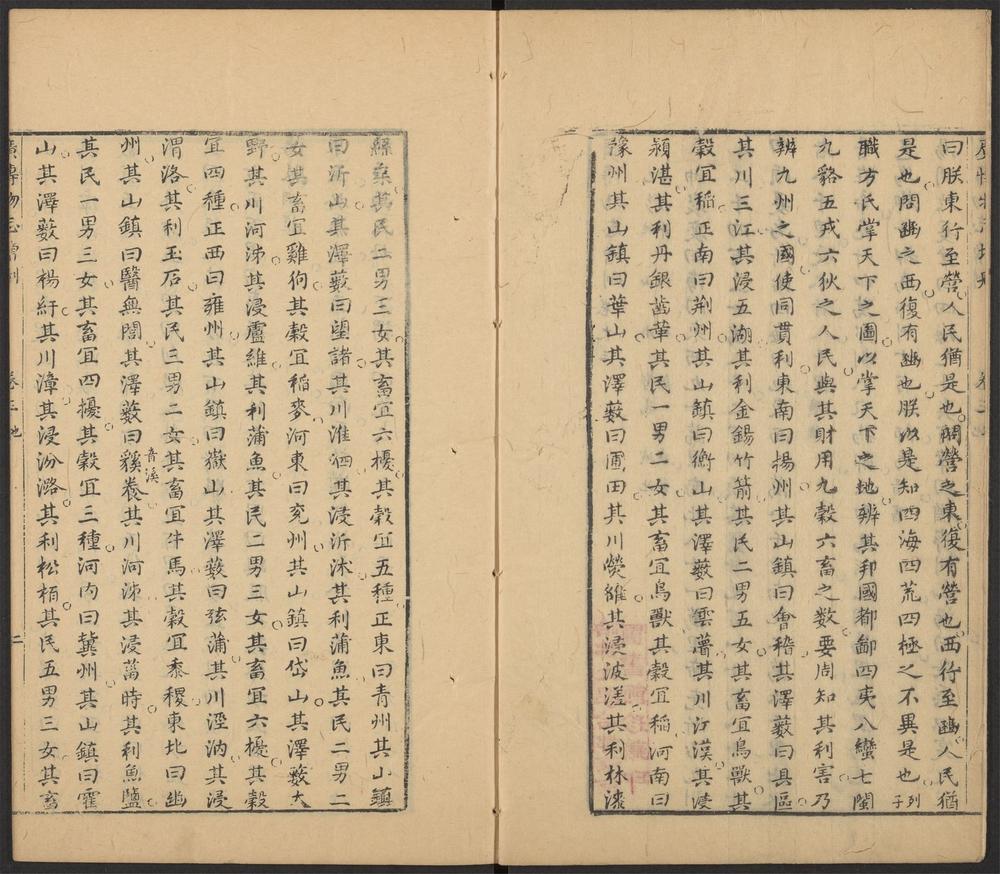 曰朕東行至營人民猶是也問營之東復有營也西行至豳人民猶
是也問豳之西復有豳也朕以是知四海四荒四極之不異是也列子
職方氏掌天下之圖以掌天下之地辨其邦國都鄙四夷八蠻七閩
九貉五戎六狄之人民與其財用九穀六畜之數要周知其利害乃
辨九州之國使同貫利東南曰揚州其山鎮曰會稽其澤藪曰具區
其川三江其浸五湖其利金錫竹箭其民二男五女其畜宜鳥獸其
穀宜稻正南曰荆州其山鎮曰衡山其澤藪曰雲夢其川江漢其浸
潁湛其利丹銀齒革其民一男二女其畜宜鳥獸其穀宜稻河南曰
豫州其山鎮曰華山其澤藪曰圃田其川熒雒其浸波溠其利林漆
絲枲其民二男三女其畜宜六擾其穀宜五種正東曰青州其山鎮
曰沂山其澤藪曰望諸其川淮泗其浸沂沭其利蒲魚其民二男二
女其畜宜雞狗其穀宜稻麥河東曰兗州其山鎮曰岱山其澤藪大
野其川河泲其浸盧維其利蒲魚其民二男三女其畜宜六擾其穀
宜四種正西曰雍州其山鎮曰嶽山其澤藪曰弦蒲其川涇汭其浸
渭洛其利玉石其民三男二女其畜宜牛馬其穀宜黍稷東北曰幽
州其山鎮曰醫無閭其澤藪曰貕養音溪其川河泲其浸菑時其利魚鹽
其民一男三女其畜宜四擾其穀宜三種河內曰冀州其山鎮曰霍
山其澤藪曰楊紆其川漳其浸汾潞其利松栢其民五男三女其畜
廣博物志增刪 卷三 地 二